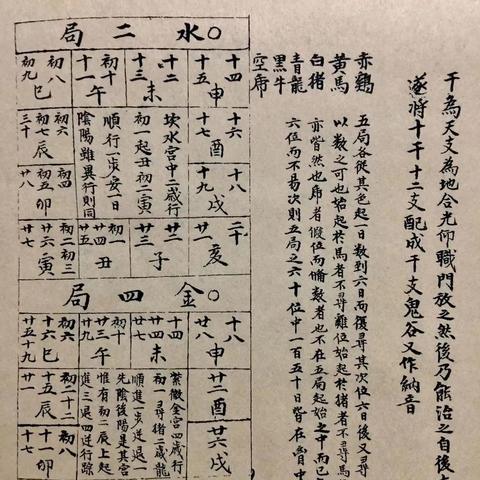 干為天支為地合光仰職門放之然後乃能治之自後大
遂將十干十二支配成干支鬼谷又作納音
赤鷄
黃馬
白猪
青龍
黑牛
空席
五局各從其色起一日數到六日而復尋其次位六日後又尋
以數之可也始起於馬者不尋雞位始起於猪者不尋馬
亦皆然也席者假位而備數者也不在五局起始之中而已
六位而不易次則五局之六十位中一百五十日皆在胷中
水二局
十四 十五 申
十二 十三 未
初十 十一 午
初八 初九 巳
十六 十七 酉
坎水宮中二歲行
初一起丑初二寅
順行一步安一日
陰陽雖異行則同
初六 初七 三十 辰
十八 十九 戌
初四 初五 廿八 卯
二十 廿一 亥
廿二 廿三 子
初一 廿四 廿五 丑
初二 初三 廿六 廿七 寅
金四局
十八 廿八 申
十四 廿四 廿七 未
初十 廿三 廿九 午
初六 十六 十九 廿五 巳
廿二 酉
紫微金宮四歲行
初一尋猪二歲龍
順進一步逆退一
先陰後陽是其宮
惟有初二辰上起
進三退四逆行踪
初二 十二 十五 廿一 辰
廿六 戌
初八 十一 十七 卯